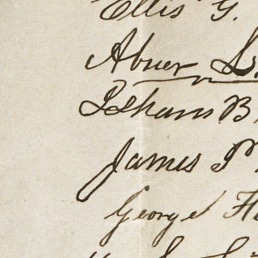 Ellis G.
Abner L.
Ishams B
James P.
George H